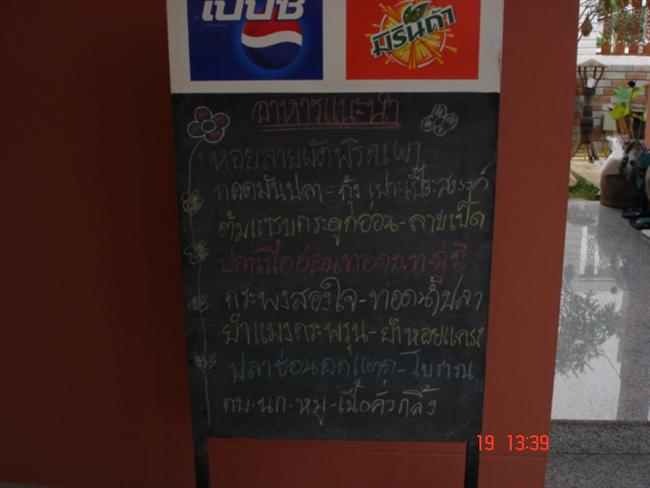 เป๊ปซี่ มิรินด้า
อาหารแนะนำ
หอยลายผัดพริกเผา
ทอดมันปลา = กุ้ง เปาะเปี๊ยะสวรรค์
ต้มแซบกระดูกอ่อน-ลาบเป็ด
ปลาเนื้ออ่อนทอดก.ท-ฉู่ฉี่
กระพงสองใจ-ทอดน้ำปลา
ยำแมงกระพรุน-ยำหอยแครง
ปลาช่อนอกแตก-โบราณ
กบ.นก.หมู-เนื้อคั่วกลิ้ง
19 13:39